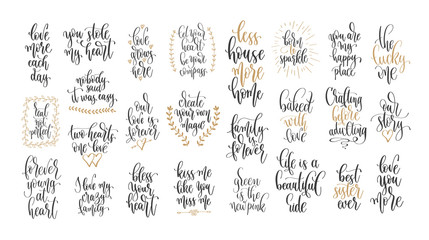 love
more
each
day
you stole
my
heart
nobody
said
it was easy
real
not
perfect
two hearts
one love
forever
young at
heart
I love my
crazy
family
love
grows
here
our
love is
forever
bless
your
heart
Let your
heart
be your
compass
Create
your own
magic
kiss me
like you
miss me
less
house
more
home
family is
forever
green is
the new
pink
born
to
sparkle
baked
with
love
life is a
beautiful
ride
you are
my
happy
place
Crafting
before
adulting
best
sister
ever
the
lucky
one
our
story
love
you
more